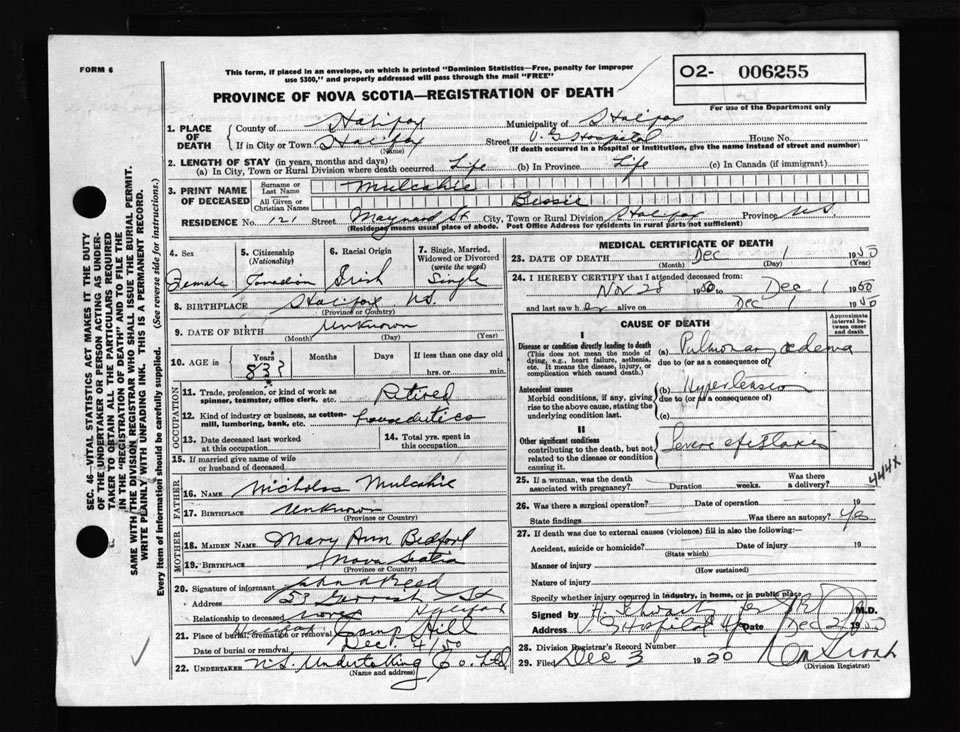 FORM 6
This form, if placed in an envelope, on which is printed "Dominion Statistics—Free, penalty for improper
use $300," and properly addressed will pass through the mail "FREE"
O2- 006255
For use of the Department only
PROVINCE OF NOVA SCOTIA—REGISTRATION OF DEATH
1. PLACE OF DEATH
County of Halifax Municipality of Halifax
If in City or Town Halifax Street V. G. Hospital House No.
(Name) (If death occurred in a hospital or institution, give the name instead of street and number)
2. LENGTH OF STAY (in years, months and days)
(a) In City, Town or Rural Division where death occurred Life (b) In Province Life (c) In Canada (if immigrant)
3. PRINT NAME OF DECEASED
Surname or Last Name Mulcahie
All Given or Christian Names Bessie
RESIDENCE No. 121 Street Maynard St City, Town or Rural Division Halifax Province N.S.
(Residence means usual place of abode. Post Office Address for residents in rural parts not sufficient)
4. Sex Female
5. Citizenship (Nationality) Canadian
6. Racial Origin Irish
7. Single, Married, Widowed or Divorced (write the word) Single
8. BIRTHPLACE Halifax N.S.
(Province or Country)
9. DATE OF BIRTH Unknown
(Month) (Day) (Year)
10. AGE in Years Months Days If less than one day old
83? hrs. or min.
OCCUPATION
11. Trade, profession, or kind of work as
spinner, teamster, office clerk, etc. Retired
12. Kind of industry or business, as cotton-
mill, lumbering, bank, etc.
13. Date deceased last worked
at this occupation
14. Total yrs. spent in
this occupation
15. If married give name of wife
or husband of deceased
FATHER
16. NAME Nicholas Mulcahie
17. BIRTHPLACE Unknown
(Province or Country)
MOTHER
18. MAIDEN NAME Mary Ann Bedford
19. BIRTHPLACE Nova Scotia
(Province or Country)
20. Signature of informant Reed
Address 53 Gerrish St
Relationship to deceased Halifax
21. Place of burial, cremation or removal Camp Hill
Date of burial or removal Dec. 4/50
22. UNDERTAKER N.S. Undertaking Co. Ltd
(Name and address)
MEDICAL CERTIFICATE OF DEATH
23. DATE OF DEATH Dec 1 1950
(Month) (Day) (Year)
24. I HEREBY CERTIFY that I attended deceased from:
Nov 28 1950 to Dec 1 1950
and last saw her alive on Dec 1 1950
CAUSE OF DEATH
Approximate interval between onset and death
I
Disease or condition directly leading to death
(This does not mean the mode of
dying, e.g., heart failure, asthenia,
etc. It means the disease, injury, or
complication which caused death.)
(a) Pulmonary oedema
due to (or as a consequence of)
Antecedent causes
Morbid conditions, if any, giving
rise to the above cause, stating the
underlying condition last.
(b) Hypertension
due to (or as a consequence of)
(c)
II
Other significant conditions
contributing to the death, but not
related to the disease or condition
causing it.
Severe epistaxis
25. If a woman, was the death
associated with pregnancy? Duration weeks. Was there
a delivery?
444X
26. Was there a surgical operation? Date of operation 19
State findings Was there an autopsy? Yes
27. If death was due to external causes (violence) fill in also the following:
Accident, suicide or homicide? Date of injury 19
(State which)
Manner of injury
(How sustained)
Nature of injury
Specify whether injury occurred in industry, in home, or in public place
Signed by H. Schwartz M.D.
Address V. G. Hospital Date Dec 2 1950
28. Division Registrar's Record Number
29. Filed Dec 3 1950
(Division Registrar)
SEC. 46—VITAL STATISTICS ACT MAKES IT THE DUTY
OF THE UNDERTAKER OR PERSON ACTING AS UNDER-
TAKER TO OBTAIN ALL THE PARTICULARS REQUIRED
IN THE "REGISTRATION OF DEATH" AND TO FILE THE
SAME WITH THE DIVISION REGISTRAR WHO SHALL ISSUE THE BURIAL PERMIT.
WRITE PLAINLY WITH UNFADING INK. THIS IS A PERMANENT RECORD.
Every item of information should be carefully supplied. (See reverse side for instructions.)